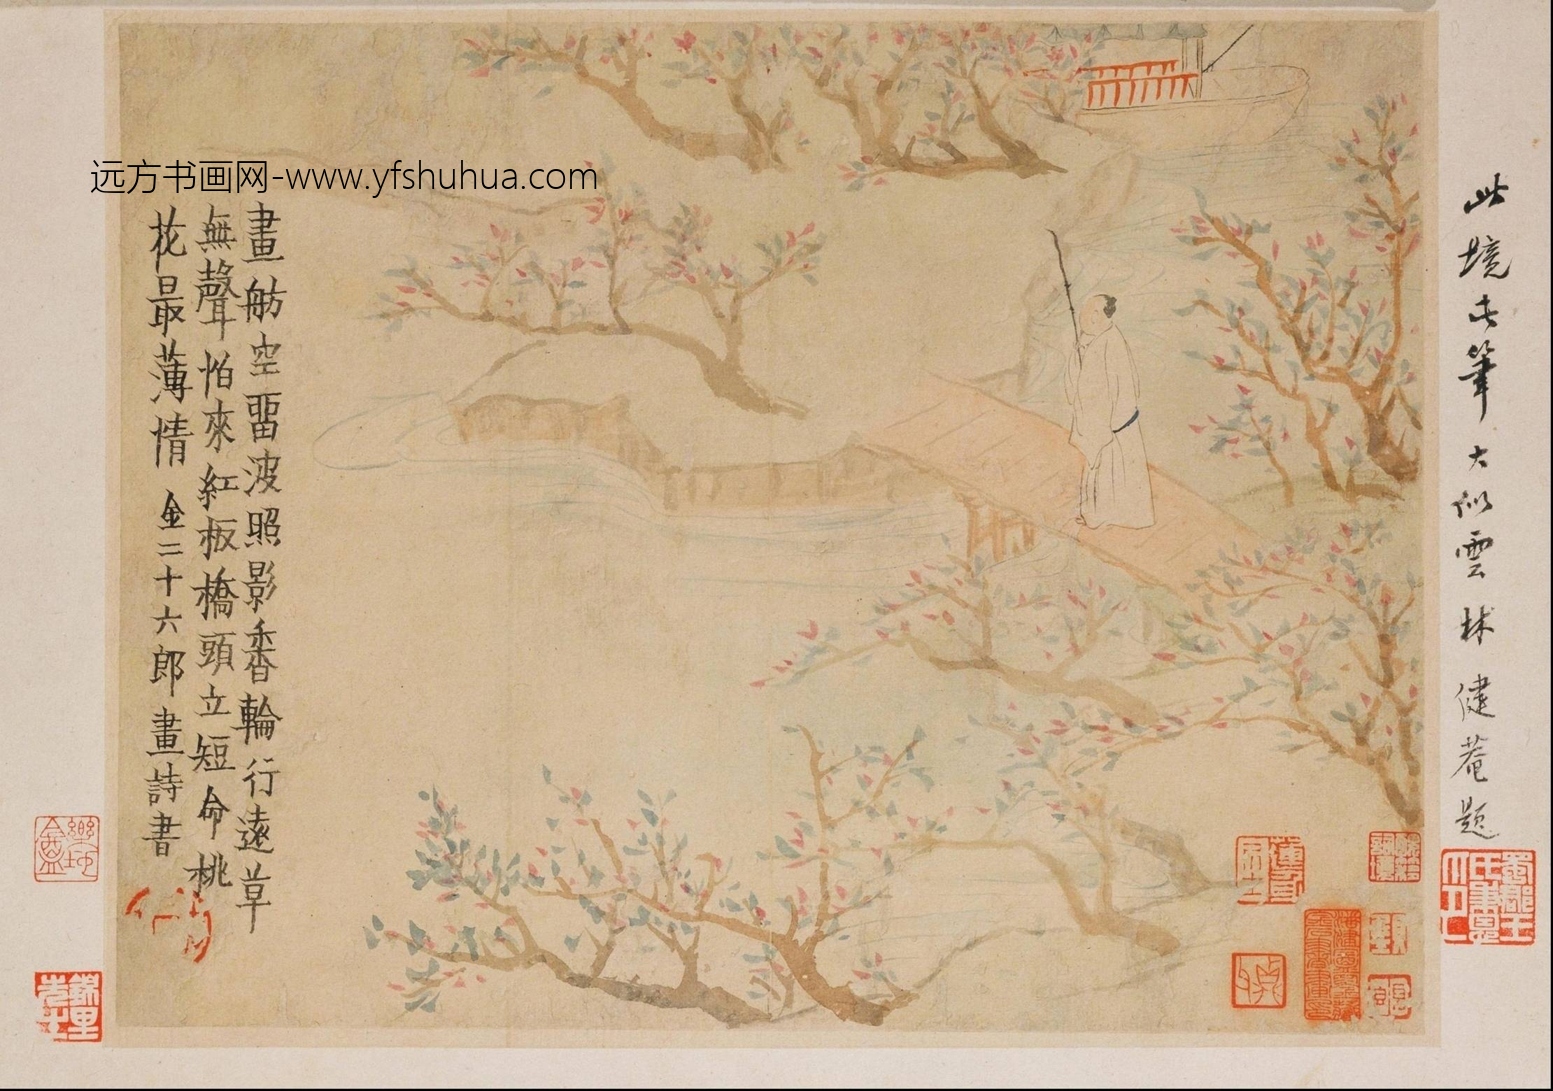 远方书画网-www.yfshuhua.com
此境此筆大似雲林 健菴題
畫舫空畱波照影香輪行遠草
無聲怕來紅板橋頭立短命桃
花最薄情 金二十六郎畫詩書